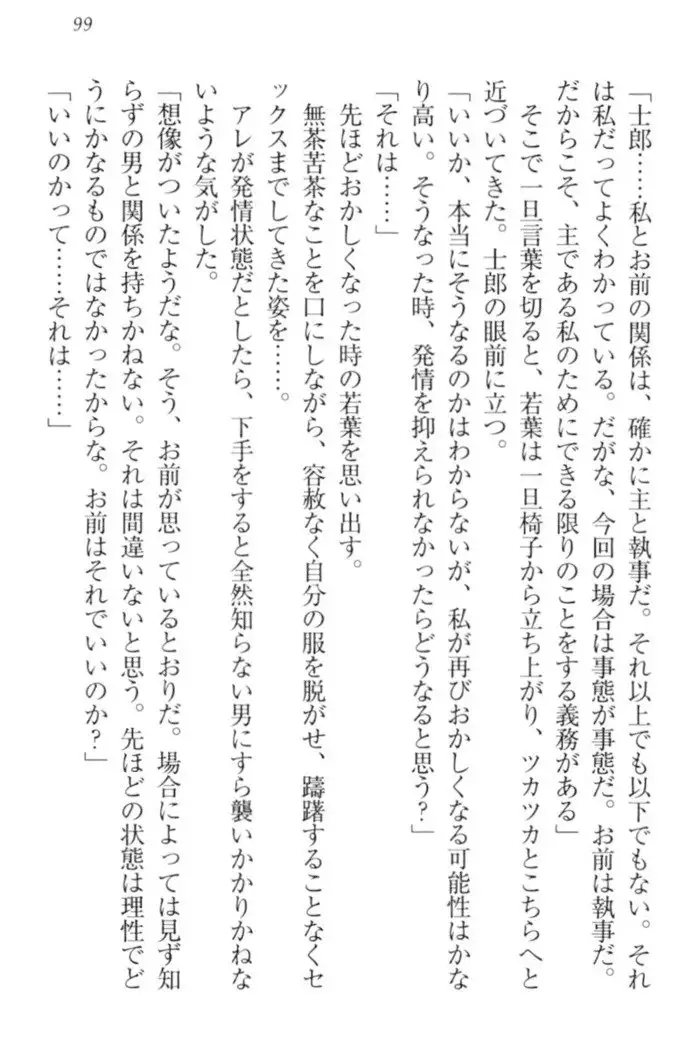 99
「士郎……私とお前の関係は、確かに主と執事だ。それ以上でも以下でもない。それ
は私だってよくわかっている。だがな、今回の場合は事態が事態だ。お前は執事だ。
だからこそ、主である私のためにできる限りのことをする義務がある」
そこで一旦言葉を切ると、若葉は一旦椅子から立ち上がり、ツカツカとこちらへと
近づいてきた。士郎の眼前に立つ。
「いいか、本当にそうなるのかはわからないが、私が再びおかしくなる可能性はかな
り高い。そうなった時、発情を抑えられなかったらどうなると思う？」
「それは……」
先ほどおかしくなった時の若葉を思い出す。
無茶苦茶なことを口にしながら、容赦なく自分の服を脱がせ、躊躇することなくセ
ックスまでしてきた姿を……。
アレが発情状態だとしたら、下手をすると全然知らない男にすら襲いかかりかねな
いような気がした。
「想像がついたようだな。そう、お前が思っているとおりだ。場合によっては見ず知
らずの男と関係を持ちかねない。それは間違いないと思う。先ほどの状態は理性でど
うにかなるものではなかったからな。お前はそれでいいのか？」
「いいのかって……それは……」